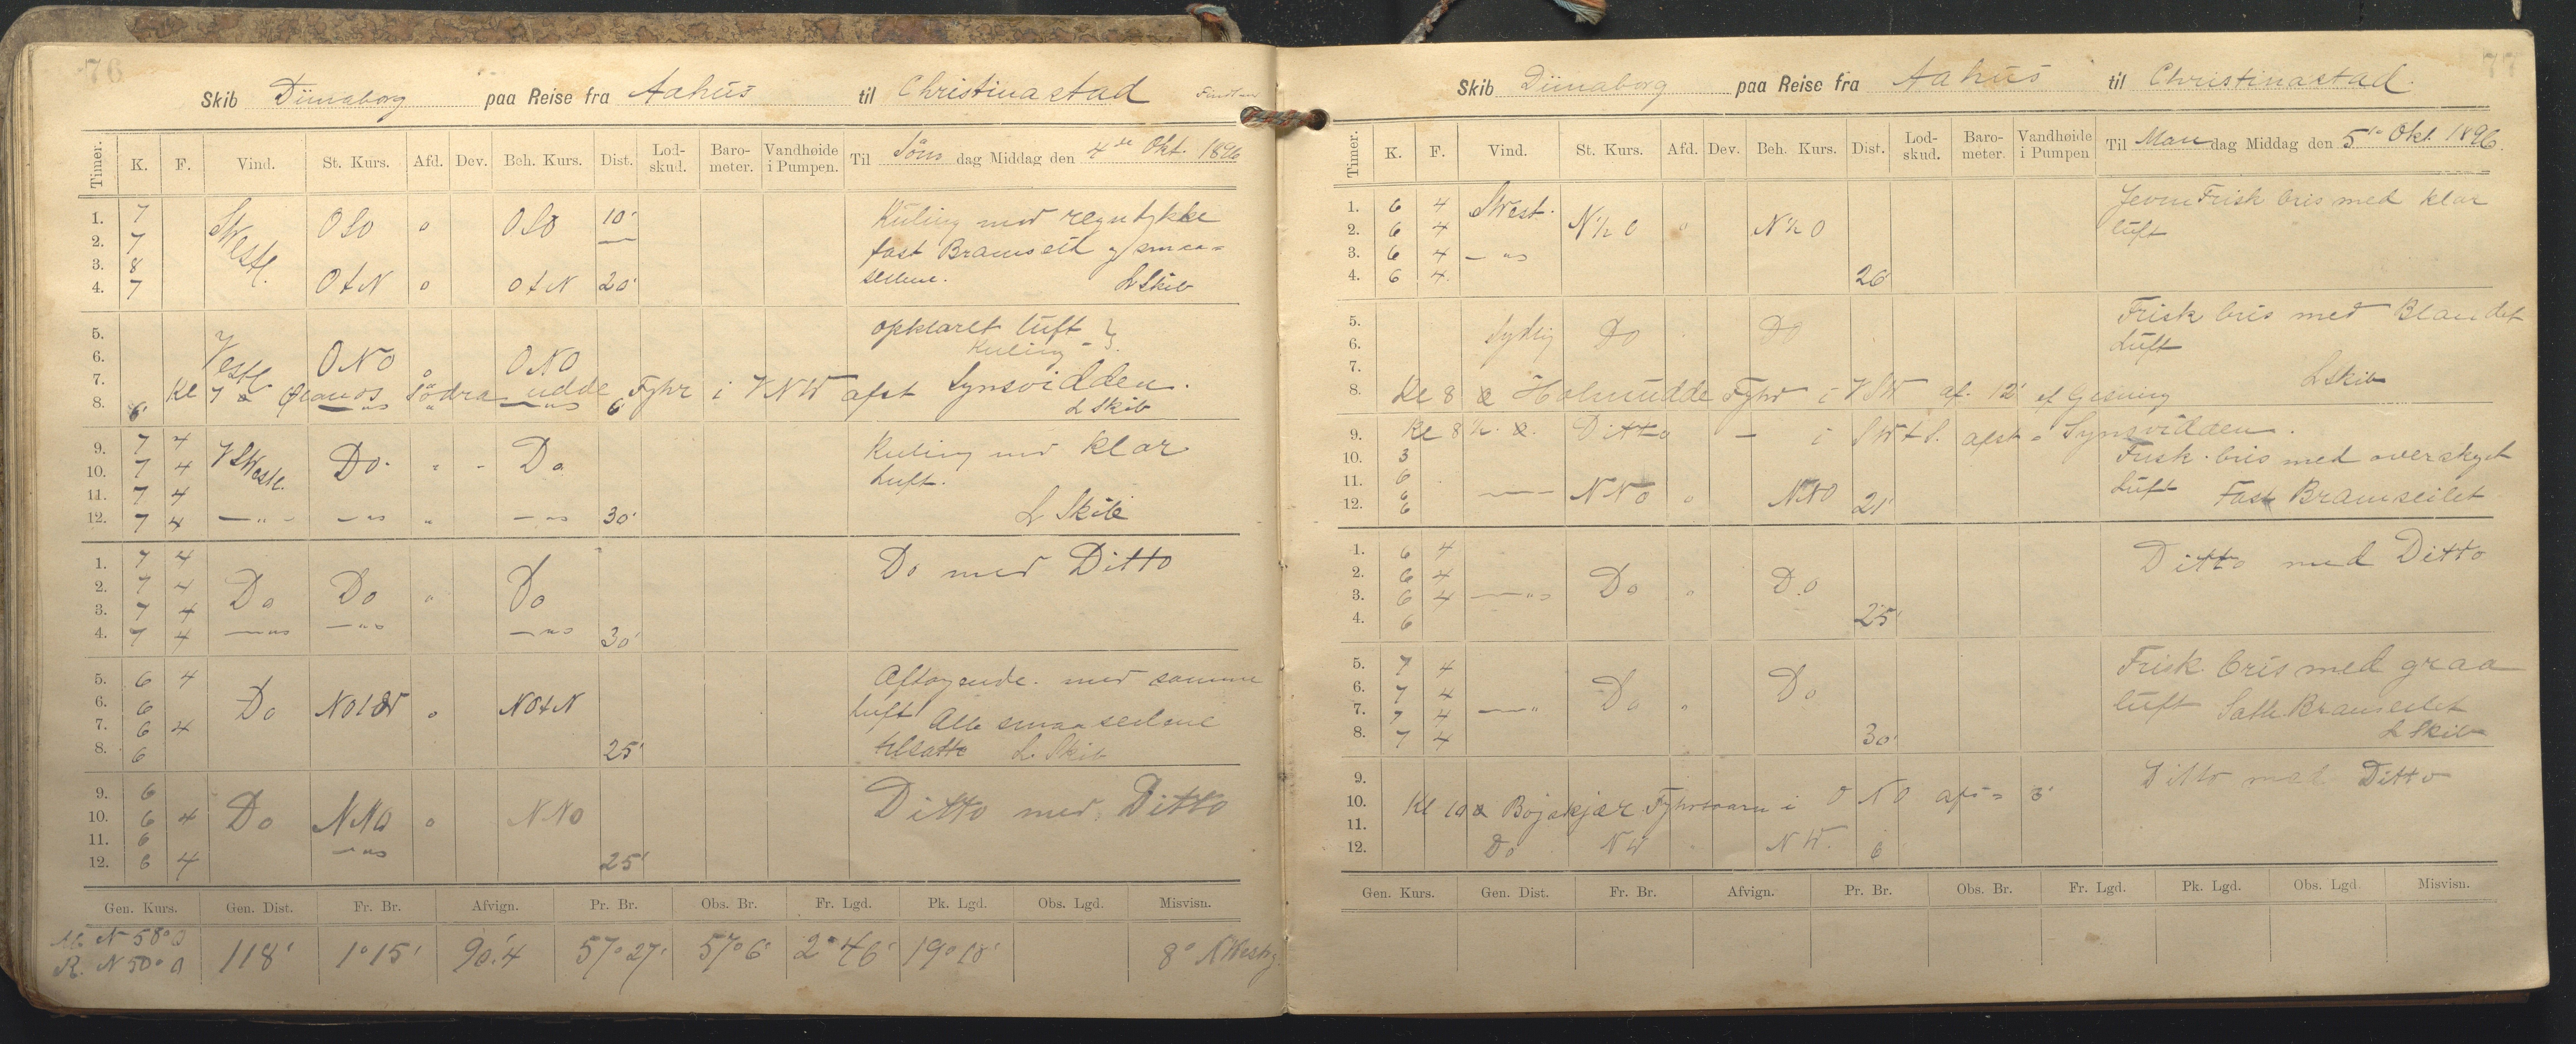 76
Skib Dünaborg paa Reise fra Aahus til Christinastad
Timer. K. F. Vind. St. Kurs. Afd. Dev. Beh. Kurs. Dist. Lod-skud. Baro-meter. Vandhøide i Pumpen. Til Søn dag Middag den 4de Okt. 1896
1. 7 SWestl. OSO " OSO 10' Kuling med regntykke
2. 7 fast Bramseil og smaa=
3. 8 seilene.
4. 7 OtN " OtN 20' L Skib
5. opklaret luft
6. Vestl ONO " ONO Kuling
7. Kl 7 Södra udde Fyhr i VNW afst Synsvidden.
8. 6' 6' L Skib
9. 7 4 VSWestl. Do. " - Do Kuling med klar
10. 7 4 Luft.
11. 7 4
12. 7 4 —"— —"— " —"— 30' L Skib
1. 7 4 Do med Ditto
2. 7 4 Do Do " Do
3. 7 4
4. 7 4 —"— —"— —"— 30'
5. 6 4 Aftagende med samme
6. 6 Do " NOtN Luft Alle smaaseilene
7. 6 4 tilsatte L. Skib
8. 6 25'
9. 6 Ditto med Ditto
10. 6 4 Do NNO " NNO
11. 6
12. 6 4 —"— 25'
Gen. Kurs. Gen. Dist. Fr. Br. Afvign. Pr. Br. Obs. Br. Fr. Lgd. Pk. Lgd. Obs. Lgd. Misvisn.
N 58° O
R. N 50° O 118' 1° 15' 90.'4 57° 27' 57° 6' 2° 46' 19° 18' 8° NWestg
77
Skib Dünaborg paa Reise fra Aahus til Christinastad.
Timer. K. F. Vind. St. Kurs. Afd. Dev. Beh. Kurs. Dist. Lod-skud. Baro-meter. Vandhøide i Pumpen Til Man dag Middag den 5te Okt. 1896.
1. 6 4 SWest. Jevn Frisk bris med klar
2. 6 4 N ½ O " N ½ O luft
3. 6 4 —"—
4. 6 4 26'
5. Frisk bris med Blandet
6. Sydlig Do Do Luft
7. L Skib
8. Kl 8 Holmudde Fyhr i VSW af. 12' ef Gisning
9. Kl 8 ½ Ditto — i SWtS. afst = Synsvidden.
10. 3 Frisk bris med overskyet
11. 6 Luft Fast Bramseilet
12. 6 —— NNO " NNO 21'
1. 6 4 Ditto med Ditto
2. 6 4 Do " Do
3. 6 4 —"—
4. 6 25'
5. 7 4 Frisk bris med graa
6. 7 4 Do Do luft Satte Bramseilet
7. 7 4 —"— "
8. 7 4 30' L Skib
9. Ditto med Ditto
10. Kl 10 i ONO afs = 3'
11.
12. Do NW NW. 6'
Gen. Kurs. Gen. Dist. Fr. Br. Afvign. Pr. Br. Obs. Br. Fr. Lgd. Pk. Lgd. Obs. Lgd. Misvisn.